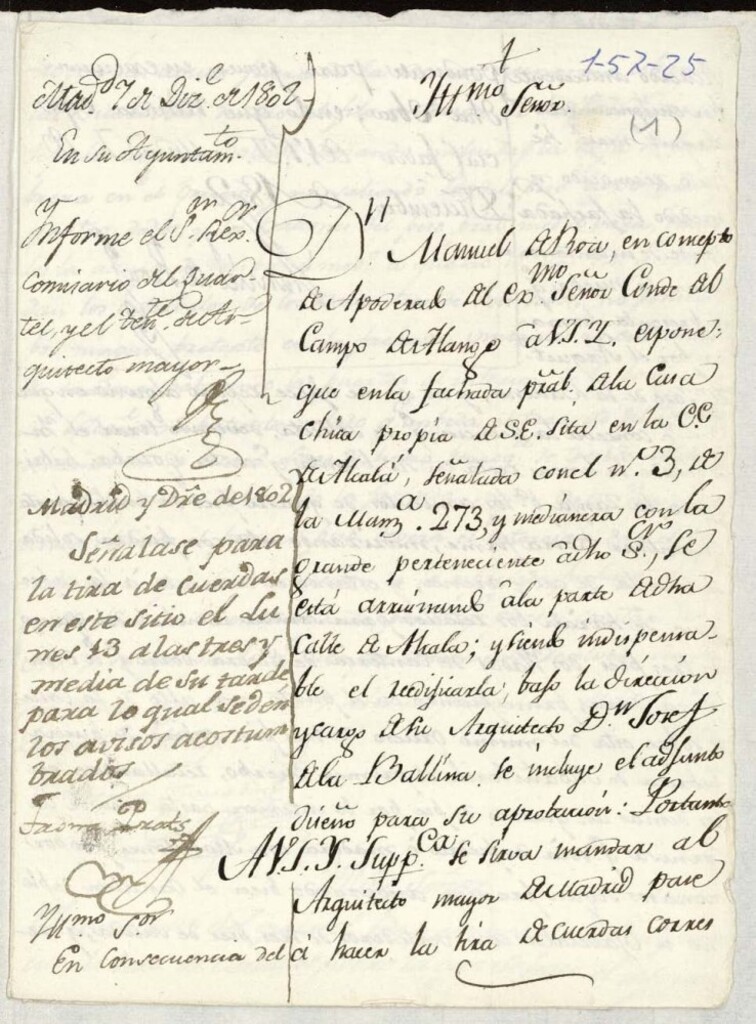 1-57-25
(1)
Madᵈ 7 de Dizᵉ de 1802
En su Ayuntamᵗᵒ
Ynforme el Sʳ Rexʳ
Comisario del Quar-
tel, y el Tenᵗᵉ de Ar-
quitecto mayor
Madrid y Dre de 1802
Señalase para
la tira de cuerdas
en este sitio el Lu
nes 13 a las tres y
media de su tarde
para lo qual se den
los avisos acostum
brados
Prats
Yllmo Sor
En Consecuencia del
Yllmo Señor.
Dn Manuel de Roa, en concepto
de Apoderado del exmo Señor Conde del
Campo de Alange a V.S.Y. espone:
que en la fachada pral. de la Casa
chica propia de S.E. sita en la Ce
de Alcalá, señalada con el nº. 3, de
la Manzª. 273, y medianera con la
grande perteneciente a dho Sor, se
está arruinando a la parte de dha
Calle de Alcala; y siendo indispensa-
ble el reedificarla, bajo la dirección
y cargo de su Arquitecto Dn Josef
de la Ballina se incluye el adjunto
diseño para su aprobación: Portanto
A V.S.Y. Suppca se sirva mandar al
Arquitecto mayor de Madrid pase
á hacer la tira de cuerdas corres